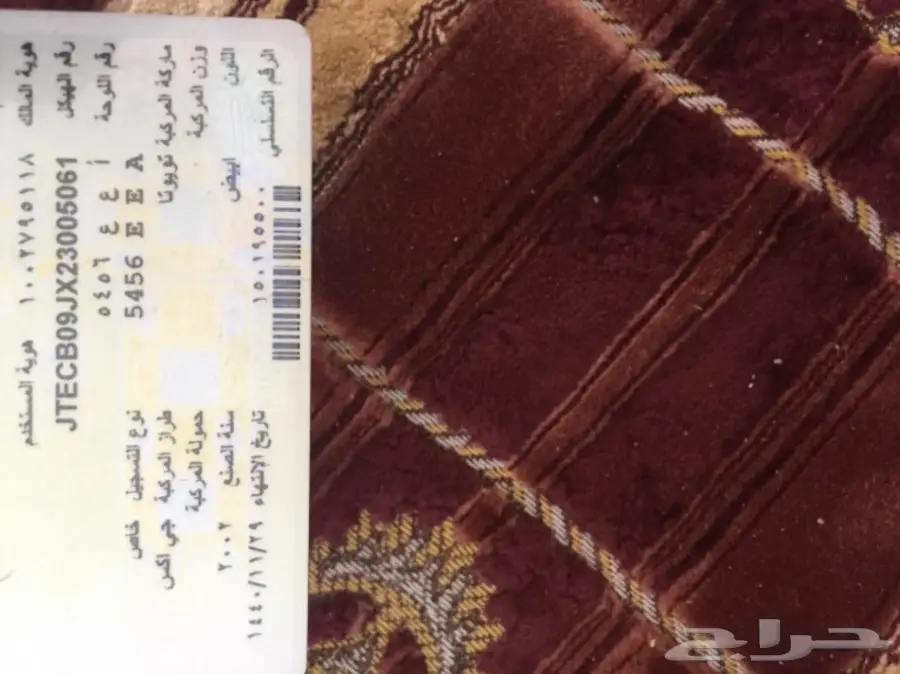 هوية المالك ١٠٠٢٧٩٥١١٨ هوية المستخدم
رقم الهيكل JTECB09JX23005061
رقم اللوحة أ ع ع ٥٤٥٦
5456 E E A نوع التسجيل خاص
ماركة المركبة تويوتا طراز المركبة جي اكس
وزن المركبة حمولة المركبة
اللون ابيض سنة الصنع ٢٠٠٢
الرقم التسلسلي ١٥٠١٩٥٥٠٠ تاريخ الإنتهاء ١٤٤٠/١١/٢٩
حراج